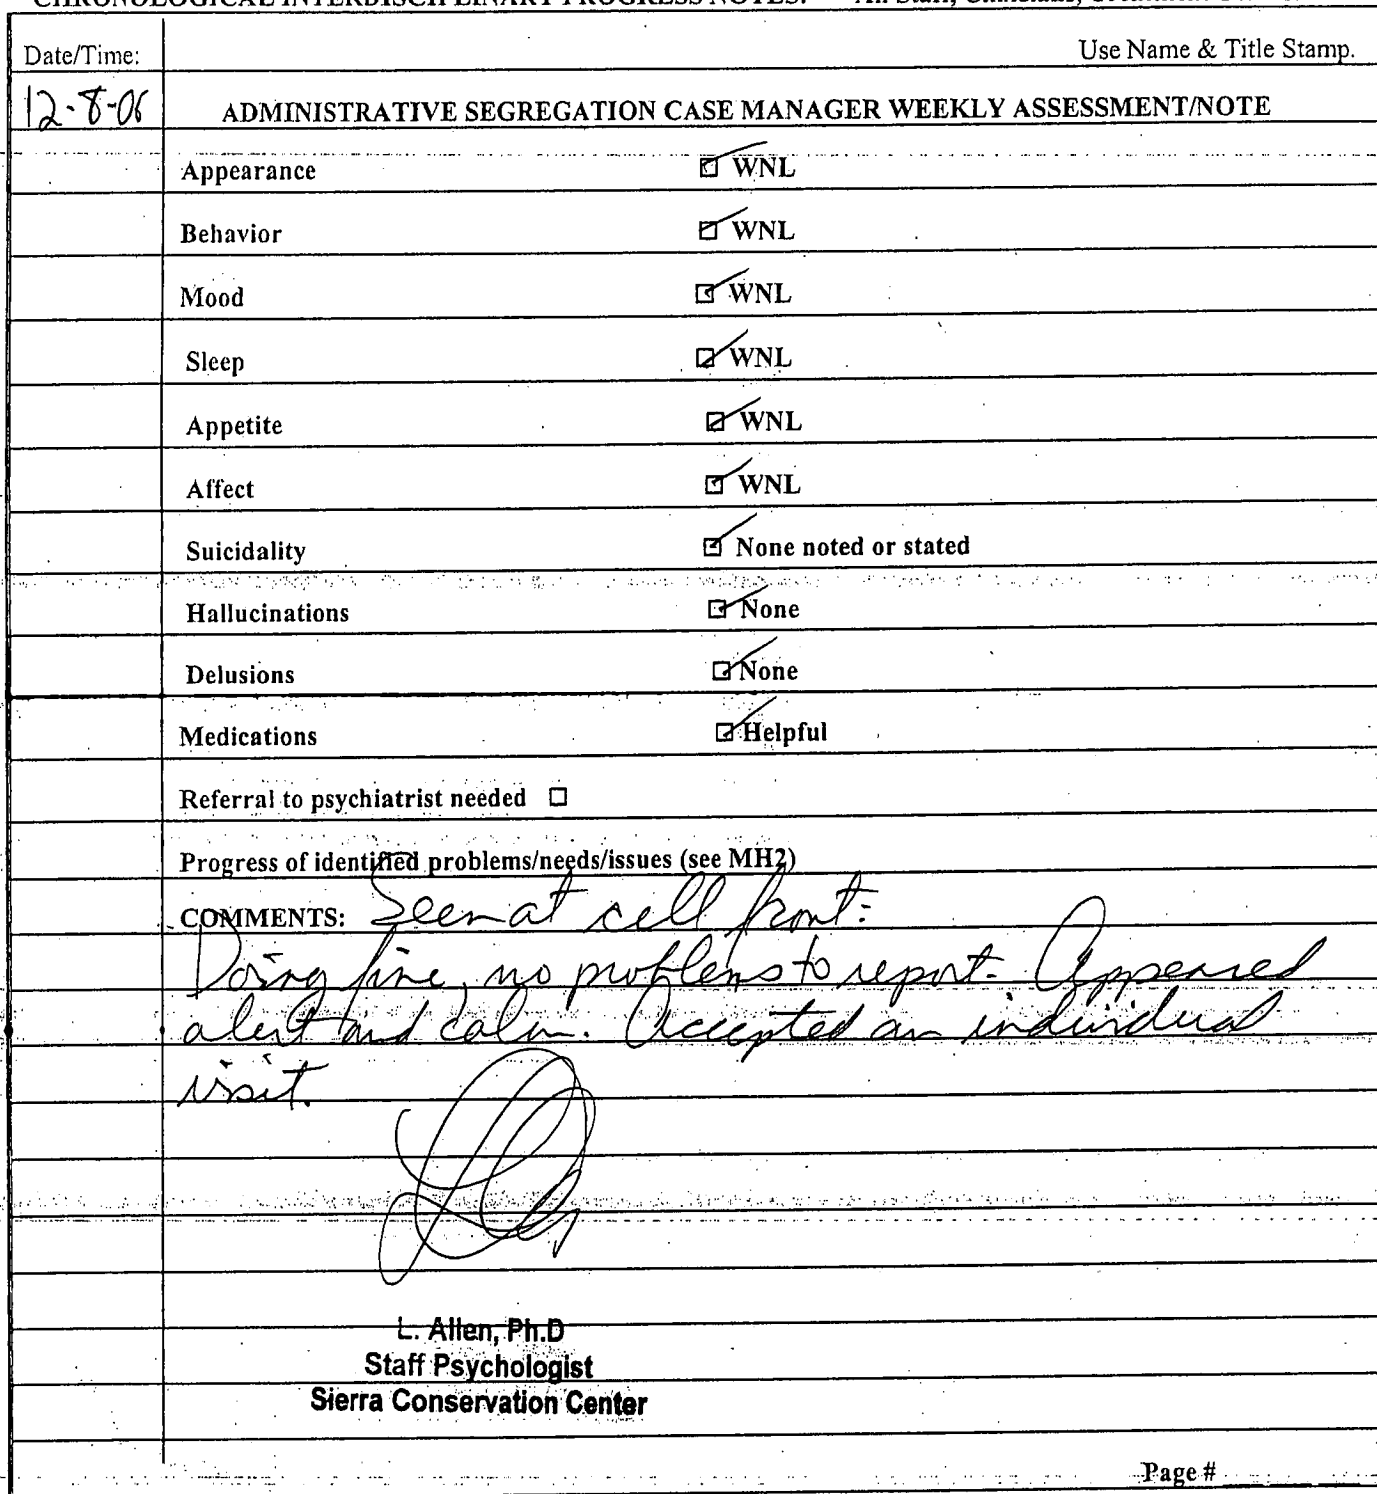 CHRONOLOGICAL INTERDISCIPLINARY PROGRESS NOTES: All Staff, Clinicians,
Date/Time: Use Name & Title Stamp.
12-8-06 ADMINISTRATIVE SEGREGATION CASE MANAGER WEEKLY ASSESSMENT/NOTE
Appearance ☑ WNL
Behavior ☑ WNL
Mood ☑ WNL
Sleep ☑ WNL
Appetite ☑ WNL
Affect ☑ WNL
Suicidality ☑ None noted or stated
Hallucinations ☑ None
Delusions ☑ None
Medications ☑ Helpful
Referral to psychiatrist needed ☐
Progress of identified problems/needs/issues (see MH2)
COMMENTS: Seen at cell front:
Doing fine, no problems to report. Appeared
alert and calm. Accepted an individual
visit.
L. Allen, Ph.D
Staff Psychologist
Sierra Conservation Center
Page #